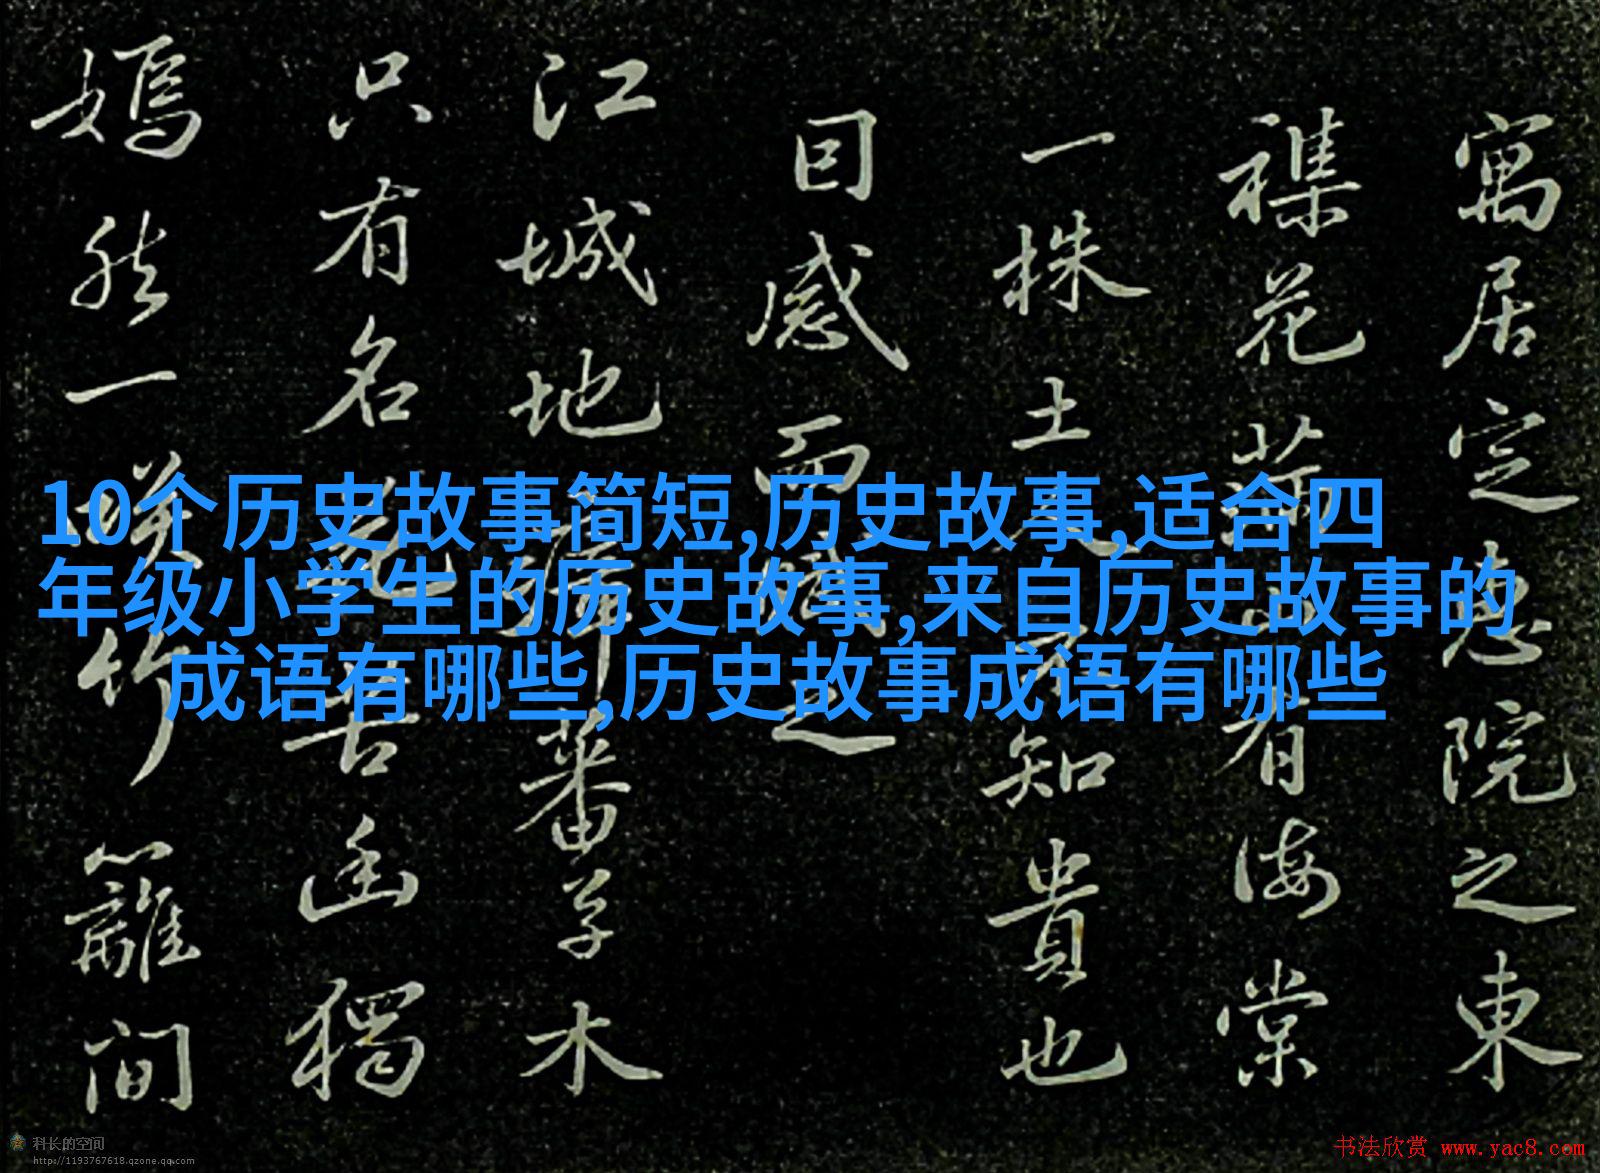 10个历史故事简短,历史故事,适合四
年级小学生的历史故事,来自历史故事的
成语有哪些,历史故事成语有哪些
寓居定惠院之東
襍花滿山有海棠
一株土人不知貴也
因感而賦之
江城地瘴蕃草木
只有名花苦幽獨
嫣然一笑竹籬間
科长的空间
http://1193767618.qzone.qq.com
书法欣赏 www.yac8.com